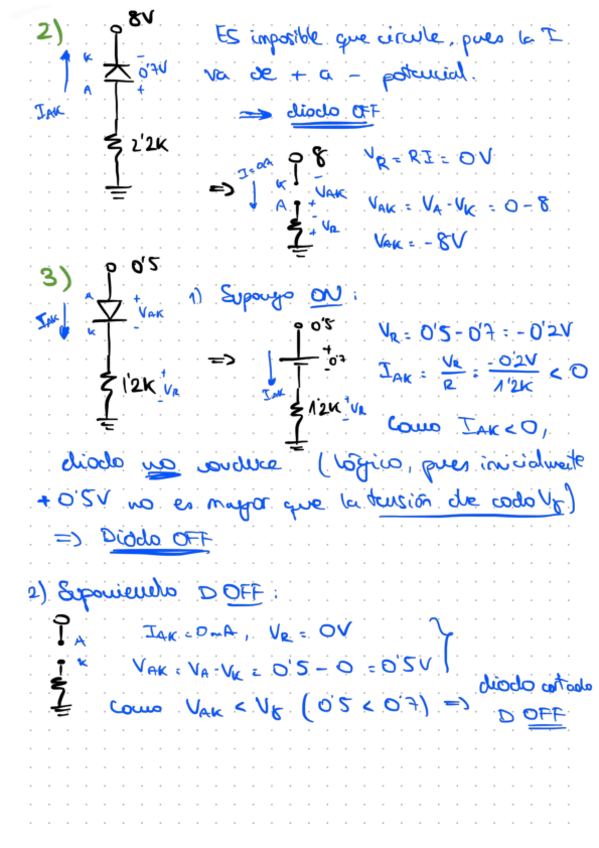 2)
8V
K
-
0'7V
A
+
I_AK
2'2K
Es imposible que circule, pues la I
va de + a - potencial.
=> diodo OFF
=>
I=0A
8
K
-
V_AK
A
+
-
V_R
+
V_R = RI = 0V
V_AK = V_A - V_K = 0 - 8
V_AK = -8V
3)
0'5
A
+
V_AK
I_AK
K
-
1'2K
+
V_R
-
1) Supongo ON:
=>
0'5
+
0'7
-
I_AK
1'2K
+
V_R
-
V_R = 0'5 - 0'7 = -0'2V
I_AK = V_R/R = -0'2V/1'2K < 0
Como I_AK < 0,
diodo no conduce (lógico, pues inicialmente
+0'5V no es mayor que la tensión de codo Vγ)
=> Diodo OFF
2) Suponiendo D OFF:
A
K
I_AK = 0mA, V_R = 0V
V_AK = V_A - V_K = 0'5 - 0 = 0'5V
Como V_AK < Vγ (0'5 < 0'7) =>
diodo cortado
D OFF